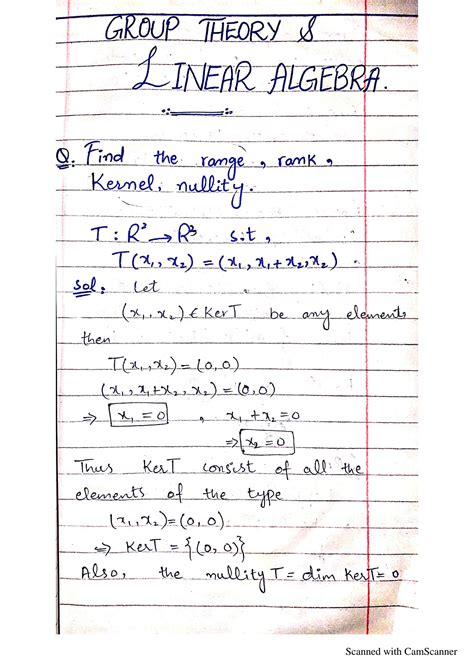 GROUP THEORY &
LINEAR ALGEBRA.
Q. Find the range, rank,
Kernel, nullity.
T : R² → R³ s.t,
T(x₁, x₂) = (x₁, x₁ + x₂, x₂).
Sol. Let
(x₁, x₂) ∈ KerT be any elements
then
T(x₁, x₂) = (0, 0)
(x₁, x₁+x₂, x₂) = (0, 0)
⇒ x₁ = 0 , x₁ + x₂ = 0
⇒ x₂ = 0
Thus KerT consist of all the
elements of the type
(x₁, x₂) = (0, 0).
⇒ KerT = {(0, 0)}
Also, the nullity T = dim KerT = 0
Scanned with CamScanner